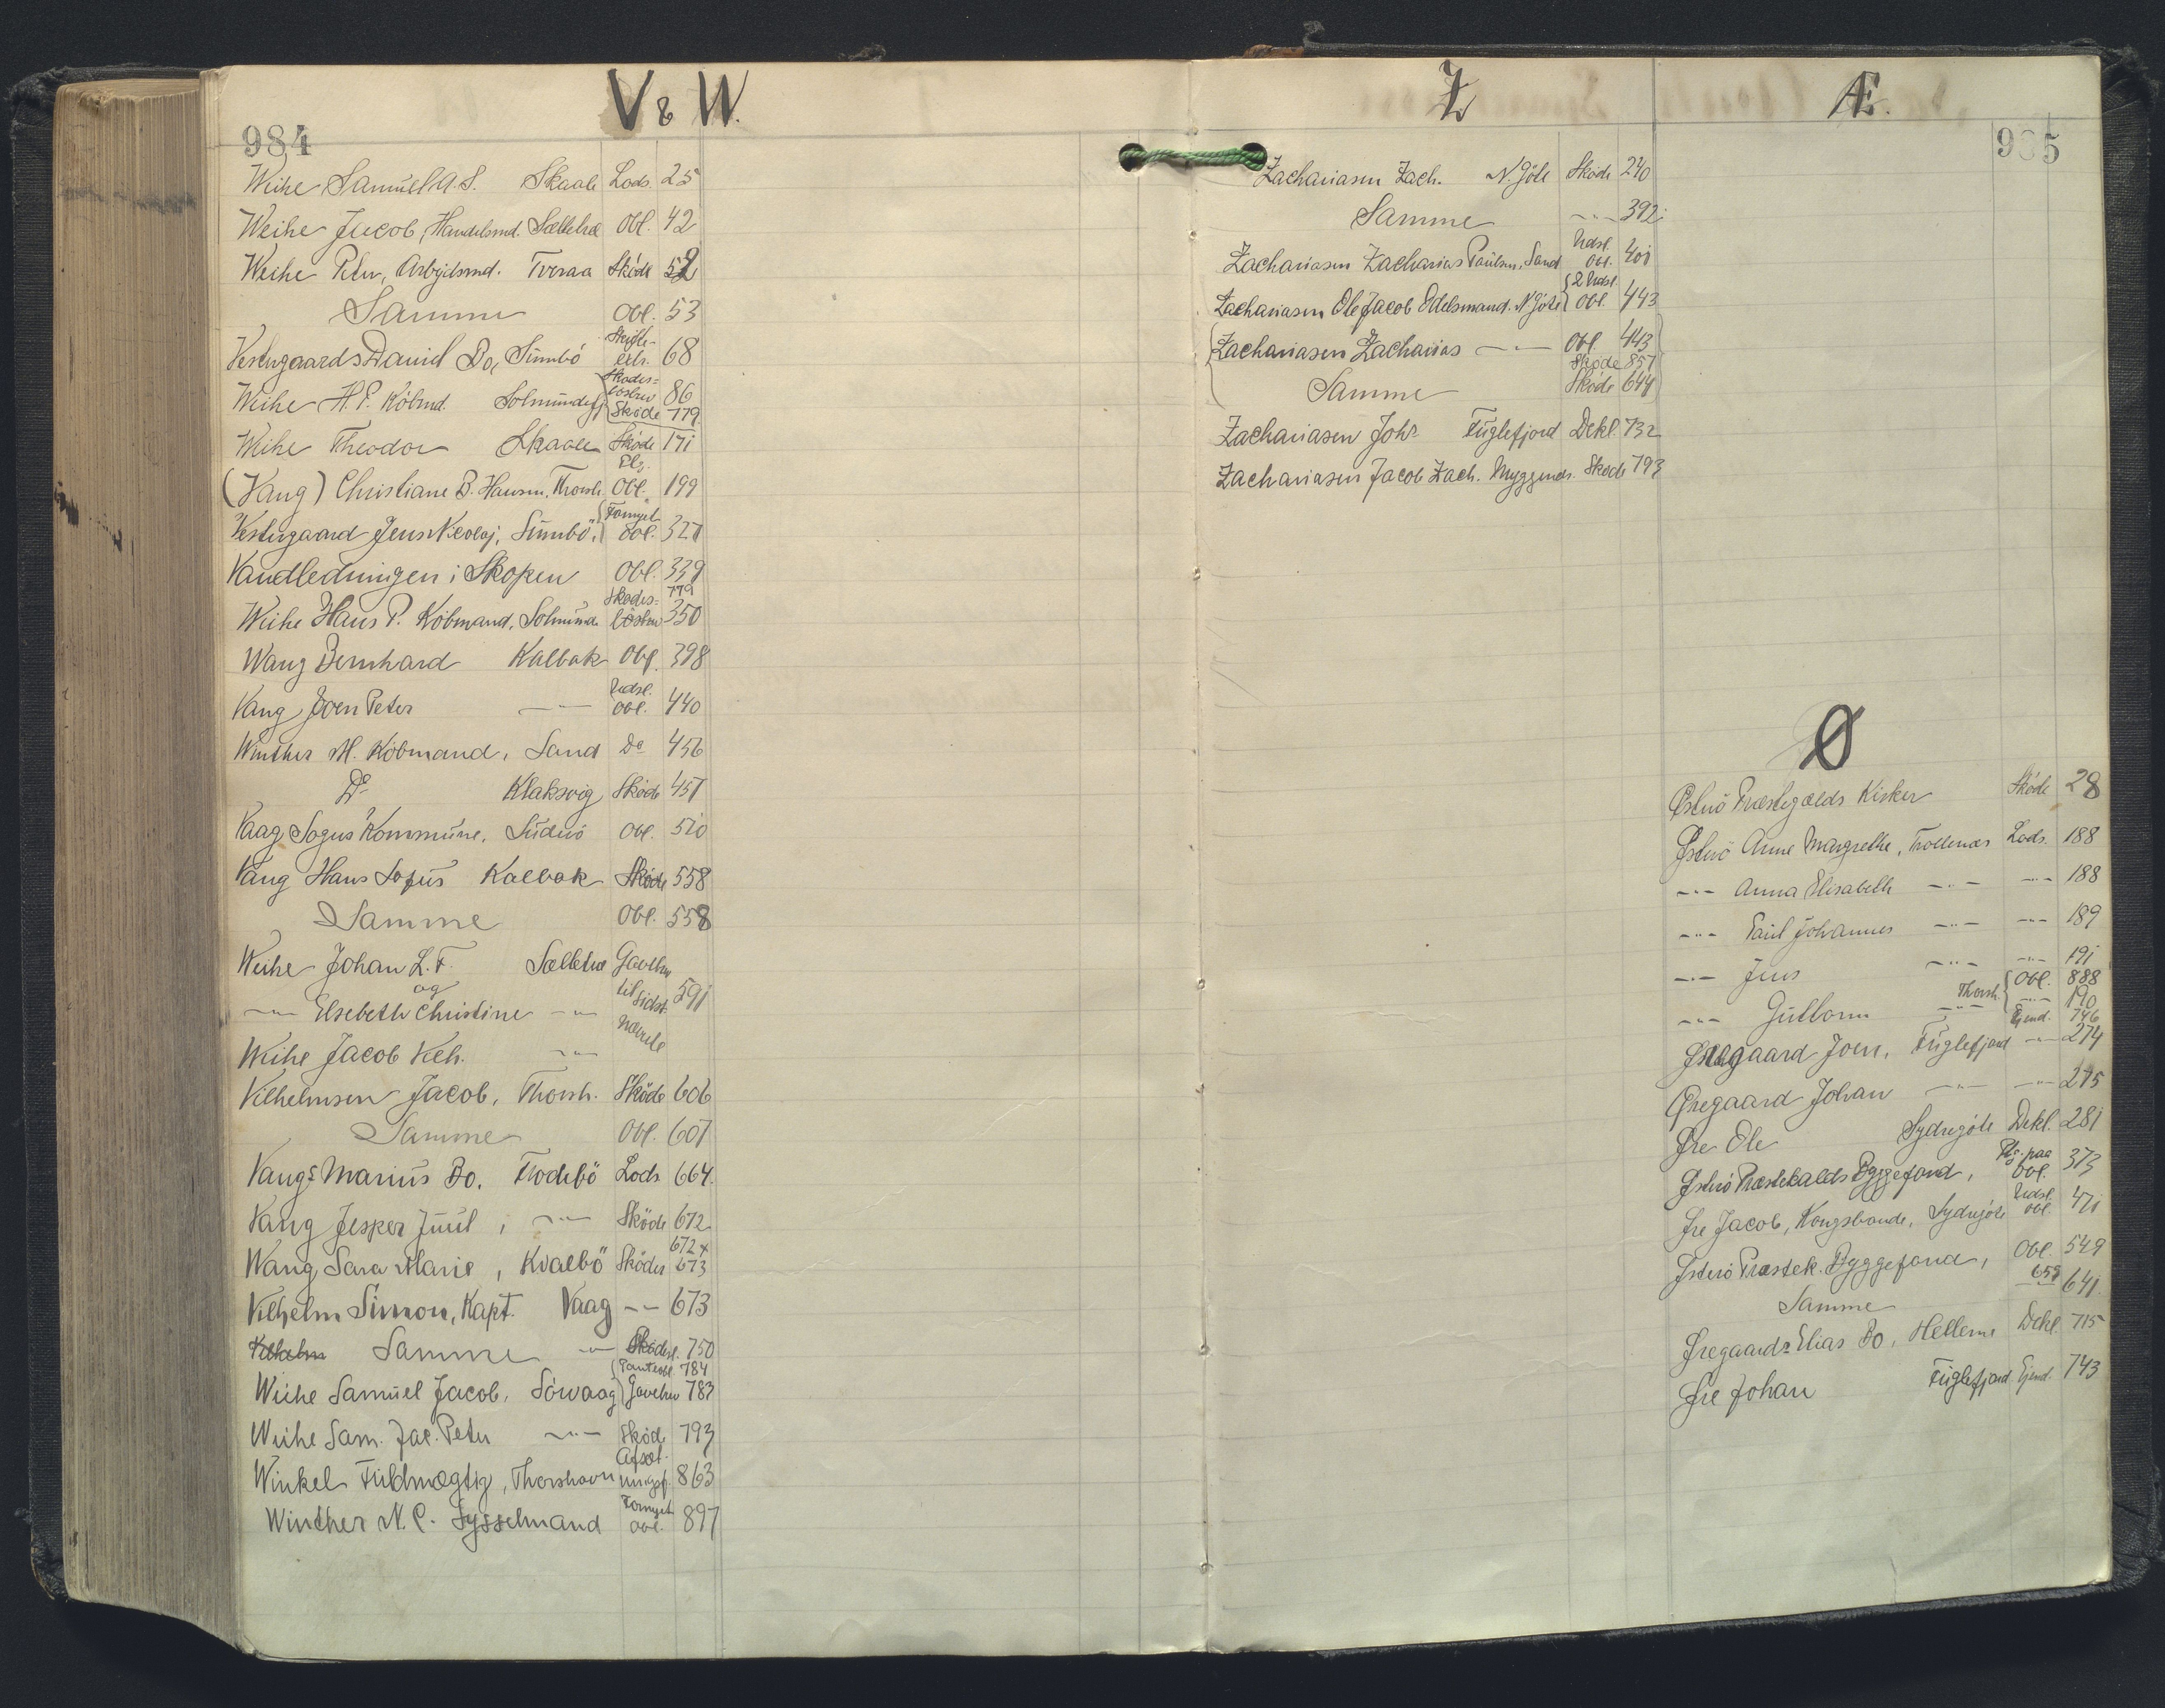 984
V & W.
Weihe Samuel A. S. Skaale Lods. 25
Weihe Jacob, Handelsmd. Obl. 42
Weihe Peter, Arbejdsmd. Tveraa Sköde 52
Samme Obl. 53
Vestergaards Daniel Bo, Sumbö Skifte- 68
Weihe H. P. Köbmd. Skødes= 86
Sköde 779
Weihe Theodor Skaale Sköde 171
(Vang) Christiane B. Hansen, Thorsh. Obl. 199
Vestergaard Jens Nicolaj, Sumbö, Fornyet Obl. 327
Vandledningen i Skopen Obl. 339
Weihe Hans P. Köbmand, Skødes= 779
350
Wang Bernhard Kalbak Obl. 398
Vang Joen Peter -"- Udsl. Obl. 440
Winther M. Köbmand, Sand Do 456
Do Klaksvig Sköde 457
Vaag Sogns Kommune, Suderö Obl. 510
Vang Hans Sofus Kalbak Sköde 558
Samme Obl. 558
Weihe Johan L. F. Gavebr.
og til sidst 591
-"- Elsebeth Christine -"- nævnte
Weihe Jacob Keh. -"-
Vilhelmsen Jacob, Thorsh. Sköde 606
Samme Obl. 607
Vangs Marius Bo. Lods 664.
Vang Jesper Juul, -"- Sköde 672
Wang Sara Marie, Kvalbö Sköder 672 + 673
Vilhelm Simon, Kapt. Vaag -"- 673
Vilhelm Samme -"- 750
Panteobl. 784
Weihe Samuel Jacob, Sörvaag Gavebrev 783
Weihe Sam. Jac. Peter -"- Sköde 793
Winkel Fuldmægtig, Thorshavn Afsæt- 863
Winther N. C. Sysselmand Fornyet Obl. 897
985
Z
Zachariasen Zach. N. Göte Sköde 240
Samme -"- 392
Zachariasen Zacharias Paulsen, Sand Udsl. Obl. 401
Zachariasen Ole Jacob Odelsmand. N. Göte 2 Udsl. Obl. 443
Zachariasen Zacharias -"- Obl. 443
Sköde 857
Samme Sköde 644
Zachariasen Johs Fuglefjord Dekl. 732
Zachariasen Jacob Zach. Myggenæs. Sköde 793
Æ.
Ø
Østerö Præstegælds Kirker Sköde 28
Østerö Anne Margrethe, Trollenæs Lods. 188
-"- Anna Elisabeth -"- -"- 188
-"- Paul Johannes -"- -"- 189
-"- Jens -"- -"- 191
Thorsh. Obl. 888
-"- Gutborn -"- -"- 190
Ejend. 746
Øregaard Joen, Fuglefjord -"- 274
Øregaard Johan -"- -"- 275
Øre Ole Sydregöte Dekl. 281
Østerö Præstekalds Byggefond, paa Obl. 373
Øre Jacob, Kongsbonde, Sydregöte Udsl. Obl. 471
Østerö Præstek. Byggefond, Obl. 549
658
Samme -"- 641
Øregaards Elias Bo, Hellerne Dekl. 715
Øre Johan Fuglefjord Ejend. 743